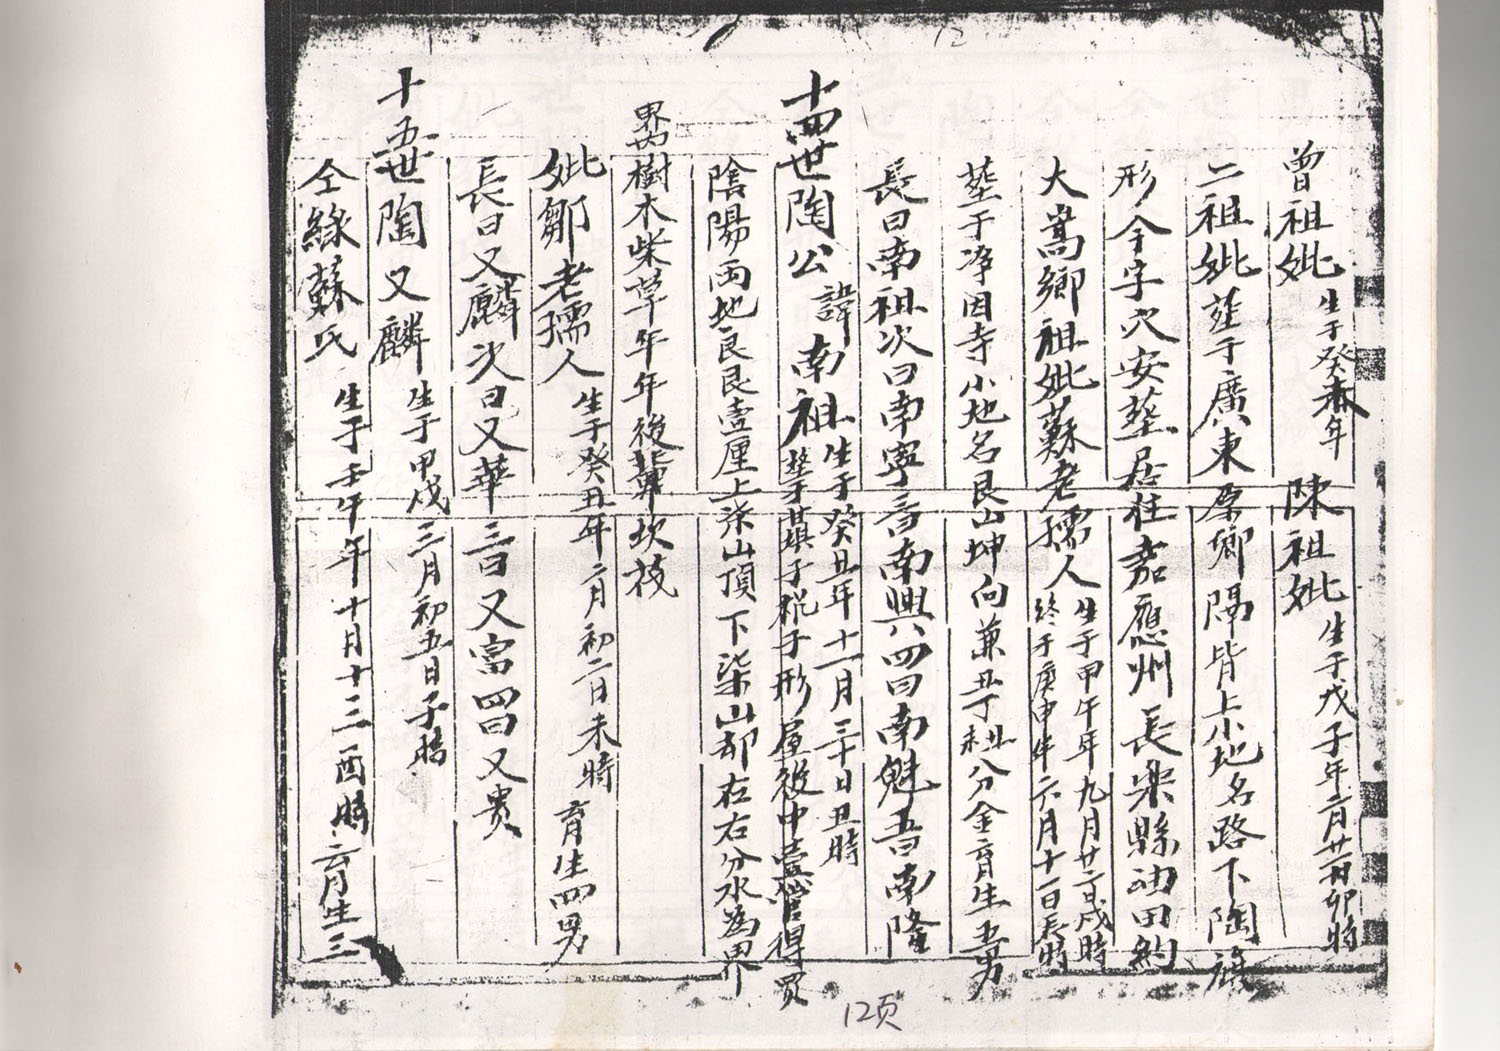 12
曾祖妣 生于癸年 陳祖妣 生于戊子年二月廿一日卯時
二祖妣葬于廣東原鄉隔背上小地名路下陶
形令字穴安葬居住嘉應州長楽縣洞田約
大嵩鄉祖妣蘇老孺人 生于甲午年九月廿二日戌時
終于庚申年六月十一日辰時
葬于净因寺小地名艮山坤向兼丑丁未丑分金育生五男
長曰南祖次曰南寧三曰南興四曰南魁五曰南隆
十四世陶公諱南祖 生于癸丑年十一月三十日丑時
葬于子形屋後中壹營得買
陰陽両地良艮壹厘上柒山頂下柒山却在右分水為界
界內樹木柴草年年後龍坎枝
妣鄒老孺人 生于癸丑年二月初二日未時 育生四男
長曰又麟次曰又華三曰又富四曰又贵
十五世陶又麟 生于甲戌三月初五日子時
仝緣蘇氏 生于壬午年十月十三酉時 育生三
12页